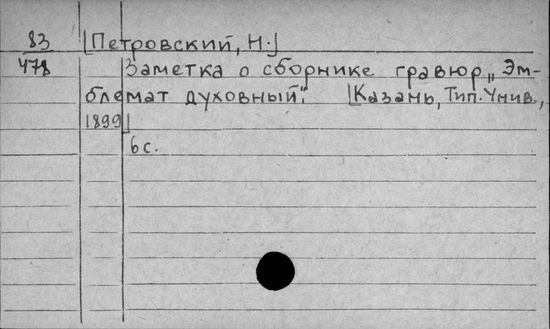 83 [Петровский, Н.]
478 Заметка о сборнике гравюр „Эм-
блемат духовный". [Казань, Тип. Унив.,
1899]
6 с.